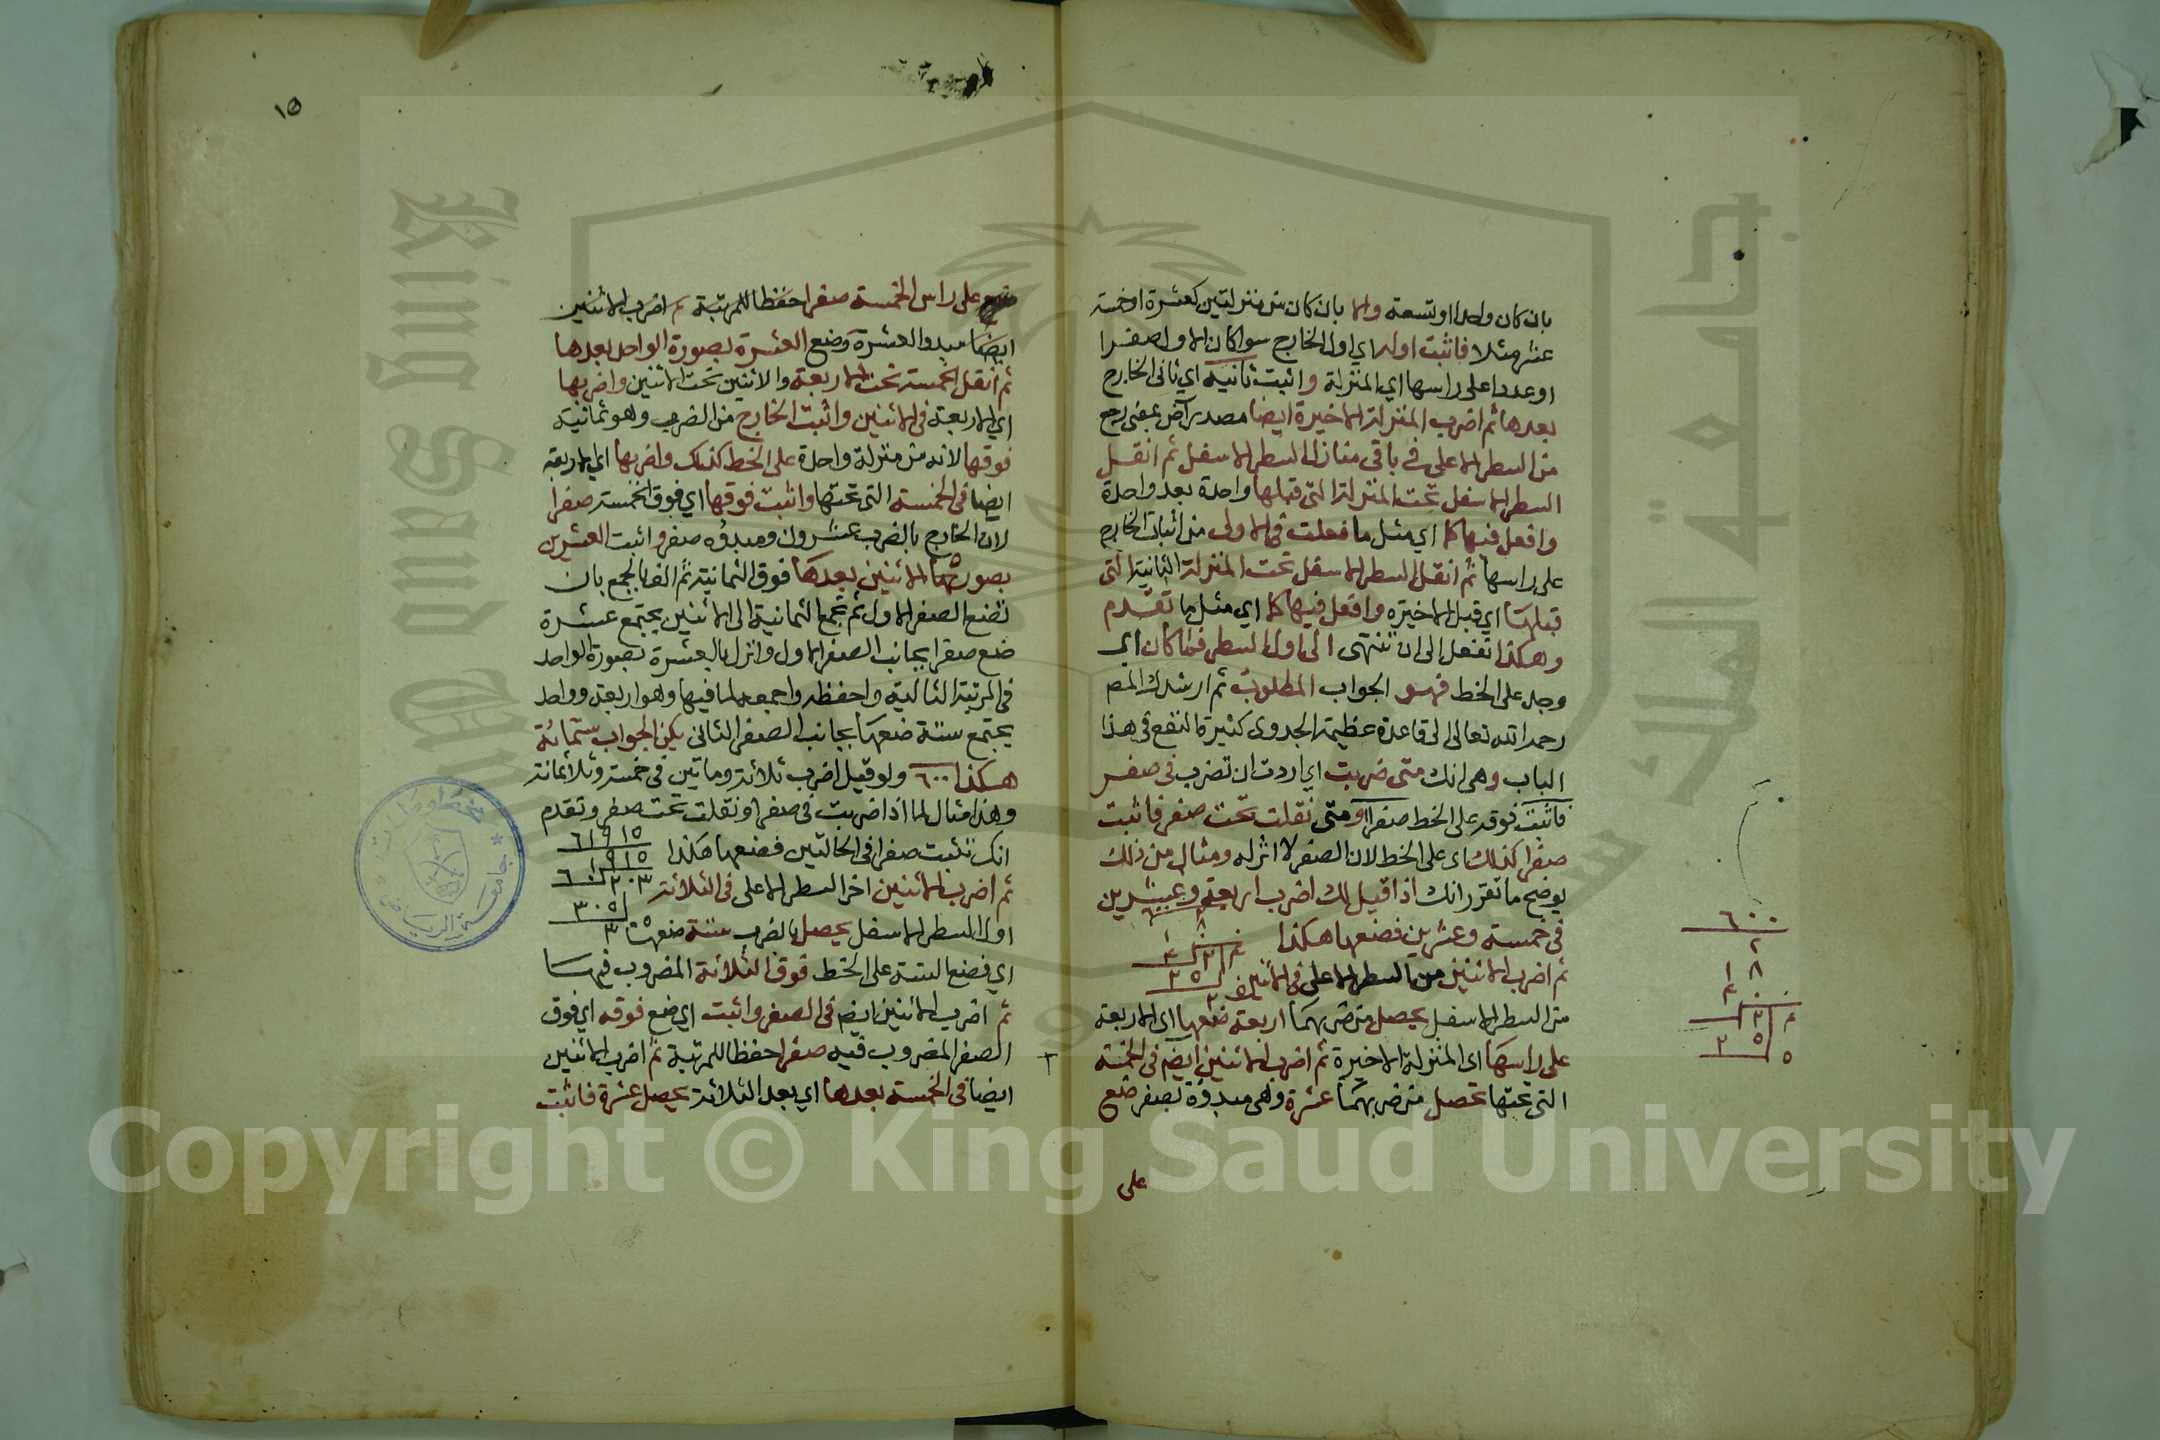 بان كان واحدا او تسعة والا بان كان من منزلتين كعشرة او خمسة
عشر مثلا فاثبت اوله اي اول الخارج سوا كان الاول صفرا
او عددا على راسها اي المنزلة واثبت ثانيه اي ثاني الخارج
بعدها ثم اضرب المنزلة الاخيرة ايضا مصدر آض بمعنى رجع
من السطر الاعلى في باقي منازل السطر الاسفل ثم انقل
السطر الاسفل تحت المنزلة التي قبلها واحدة بعد واحدة
وافعل فيها كما اي مثل ما فعلت في الاولى من اثبات الخارج
على راسها ثم انقل السطر الاسفل تحت المنزلة الثانية التي
قبلها اي قبل الاخيرة وافعل فيها كما اي مثل ما تقدم
وهكذا تفعل الى ان تنتهى الى اول السطر فما كان اي
وجد على الخط فهو الجواب المطلوب ثم ارشدك المصـ
رحمه الله تعالى الى قاعدة عظيمة الجدوى كثيرة النفع في هذا
الباب وهي انك متى ضربت اي اردت ان تضرب في صفر
فاثبت فوقه على الخط صفرا ومتى نقلت تحت صفر فاثبت
صفرا كذلك اى على الخط لان الصفر لا اثر له ومثال من ذلك
يوضح ما تقرر انك اذا قيل لك اضرب اربعة وعشرين
في خمسة وعشرين فضعها هكذا
ثم اضرب الاثنين من السطر الاعلى في الاثنين
من السطر الاسفل يحصل من ضربهما اربعة ضعها اى الاربعة
على راسها اى المنزلة الاخيرة ثم اضرب الاثنين ايضـ في الخمسة
التي تحتها تحصل من ضربهما عشرة وهي مبدوة بصفر ضع
على
٦٠٠
٢
٨
١٥
ضع على راس الخمسة صفرا حفظا للمرتبة ثم اضرب الاثنين
ايضا مبدو العشرة وضع العشرة بصورة الواحد بعدها
ثم انقل الخمسة تحت الاربعة والاثنين تحت الاثنين واضربها
اي الاربعة في الاثنين واثبت الخارج من الضرب وهو ثمانية
فوقها لانه من منزلة واحدة على الخط كذلك واضربها اي الاربعة
ايضا في الخمسة التي تحتها واثبت فوقها اي فوق الخمسة صفرا
لان الخارج بالضرب عشرون ومبدؤه صفر واثبت العشرين
بصورتها الاثنين بعدها فوق الثمانية ثم الف بالجمع بان
تضع الصفر الاول ثم تجمع الثمانية الى الاثنين يجتمع عشرة
ضع صفرا بجانب الصفر الاول وانزل بالعشرة بصورة الواحد
في المرتبة الثالثة واحفظه واجمعه لما فيها وهو اربعة وواحد
يجتمع ستة ضعها بجانب الصفر الثاني يكن الجواب ستمائة
هكذا ٦٠٠ ولو قيل اضرب ثلاثة وماتين في خمسة وثلاثمائة
وهذا مثال لما اذا ضربت في صفر او نقلت تحت صفر وتقدم
انك تثبت صفرا في الحالتين فضعها هكذا ٦١٩١٥
ثم اضرب الاثنين اخر السطر الاعلى في الثلاثة
اول السطر الاسفل يحصل بالضرب ستة ضعها
اي فضع الستة على الخط فوق الثلاثة المضروب فيها
ثم اضرب الاثنين ايضـ في الصفر واثبت اي ضع فوقه اي فوق
الصفر المضروب فيه صفرا حفظا للمرتبة ثم اضرب الاثنين
ايضا في الخمسة بعدها اي بعد الثلاثة يحصل عشرة فاثبت
جامعة الرياض
King Saud University
جامعة الملك سعود
Copyright © King Saud University